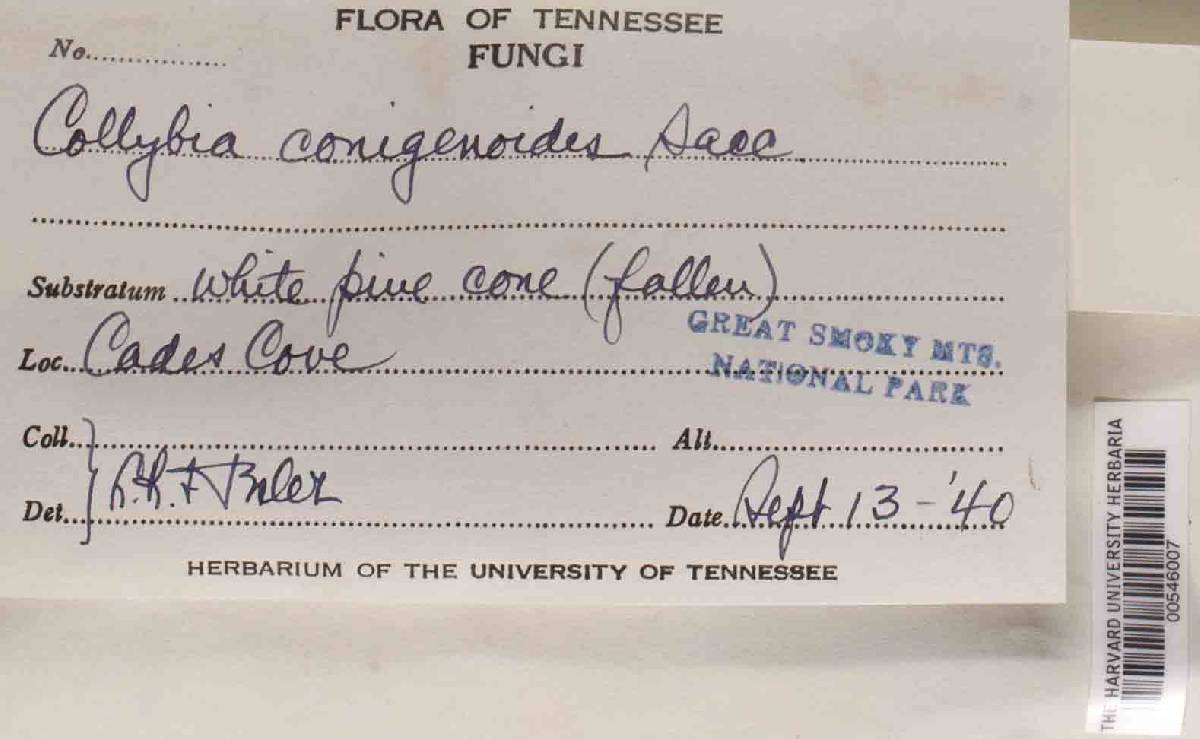 FLORA OF TENNESSEE
FUNGI
No.
Collybia conigenoides Sacc
Substratum White pine cone (fallen)
GREAT SMOKY MTS.
Loc. Cades Cove
NATIONAL PARK
Coll. Alt.
Det. Date Sept 13 - '40
HERBARIUM OF THE UNIVERSITY OF TENNESSEE
THE HARVARD UNIVERSITY HERBARIA
00546007